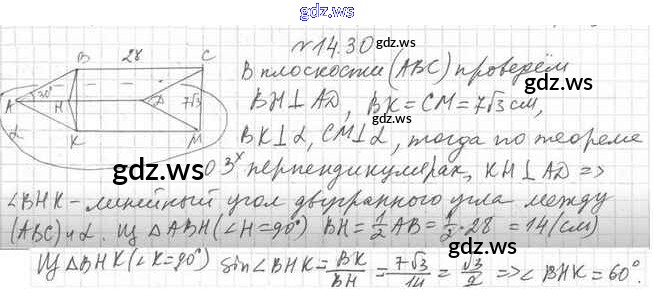 gdz.ws
№14.30
gdz.ws
B 28 C
В плоскости (ABC) проведём
A 30° H D 7√3
BH⊥AD, BK=CM=7√3 см,
α K M
BK⊥α, CM⊥α, тогда по теореме
gdz.ws
о 3х перпендикулярах, KH⊥AD ⇒
∠BHK - линейный угол двугранного угла между
(ABC) и α. Из △ABH (∠H=90°) BH=1/2 AB=1/2·28=14(см)
Из △BHK (∠K=90°) sin∠BHK=BK/BH=7√3/14=√3/2 ⇒∠BHK=60°.
gdz.ws
gdz.ws